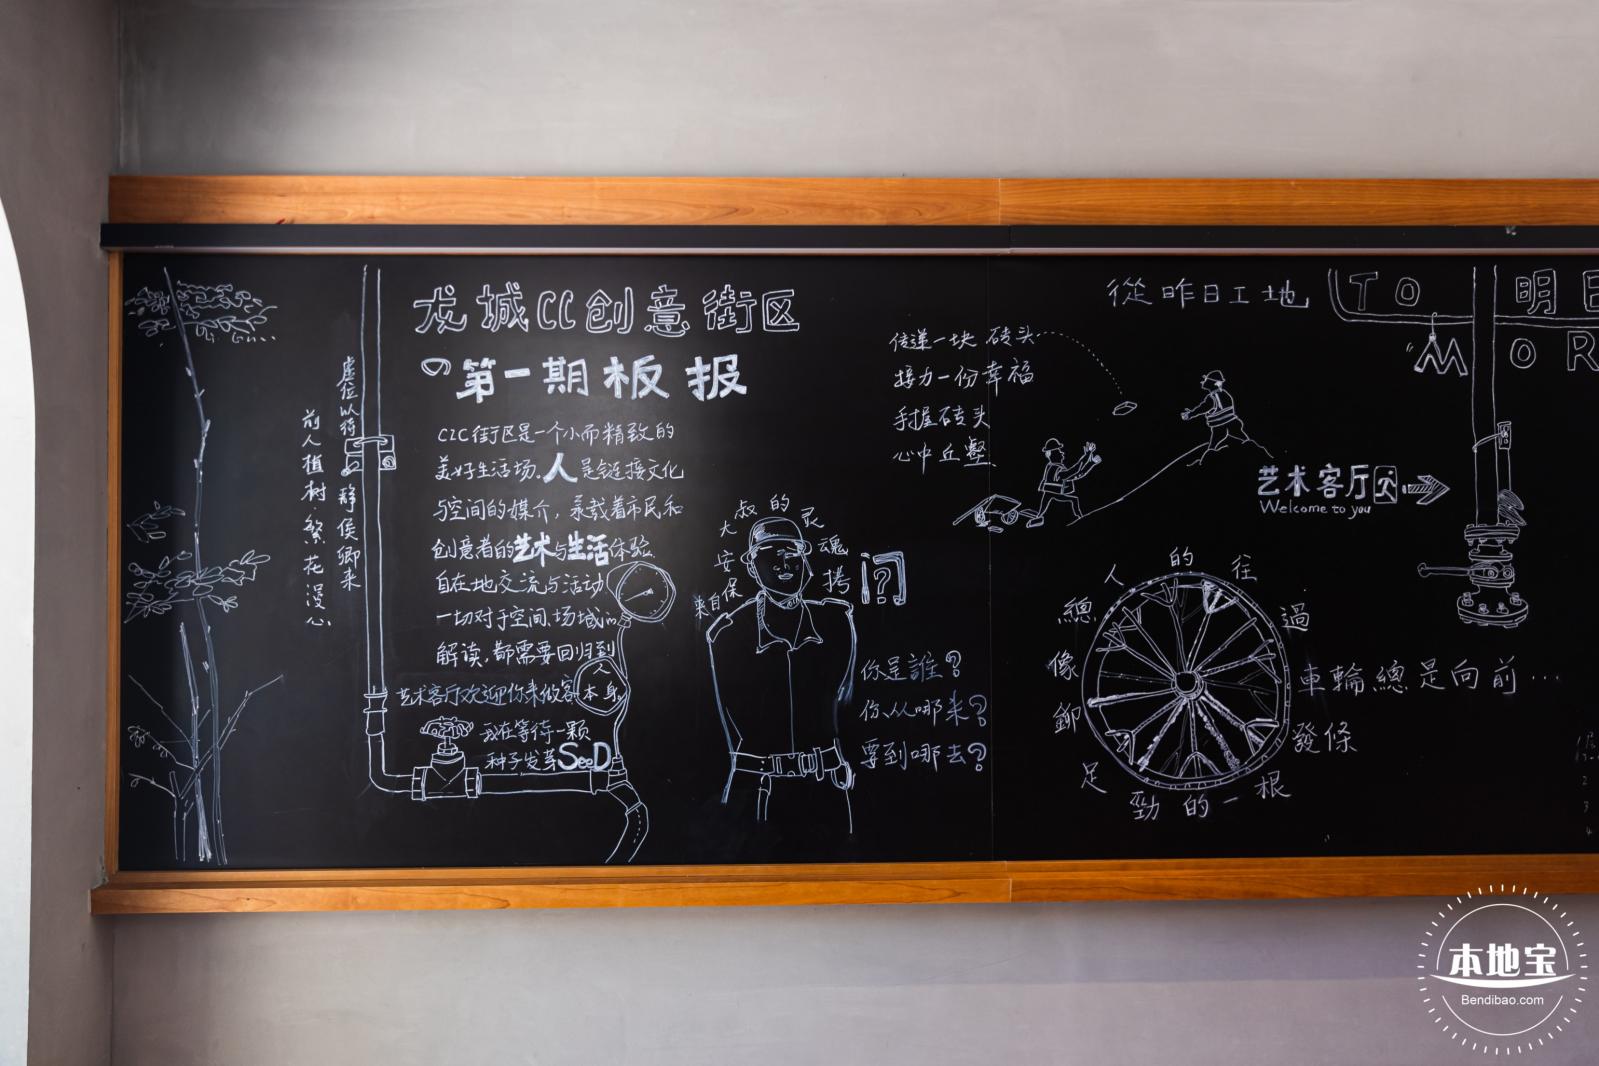 龙城CC创意街区
の第一期板报
虚位以待 静候卿来
前人植树 繁花漫心
C2C街区是一个小而精致的
美好生活场.人是链接文化
与空间的媒介，承载着市民和
创意者的艺术与生活体验.
自在地交流与活动
一切对于空间、场域的
解读,都需要回归到
人
本身.
艺术客厅欢迎你来做客
我在等待一颗
种子发芽SeeD
来自保安大叔的灵魂拷问?
你是誰？
你从哪来？
要到哪去？
传递一块砖头
接力一份幸福
手握砖头
心中丘壑.
從昨日工地
TO 明日
MOR
艺术客厅
Welcome to you
人的往
總像鉚足勁的一根
發條
過
車輪總是向前…
2
3
4
本地宝
Bendibao.com